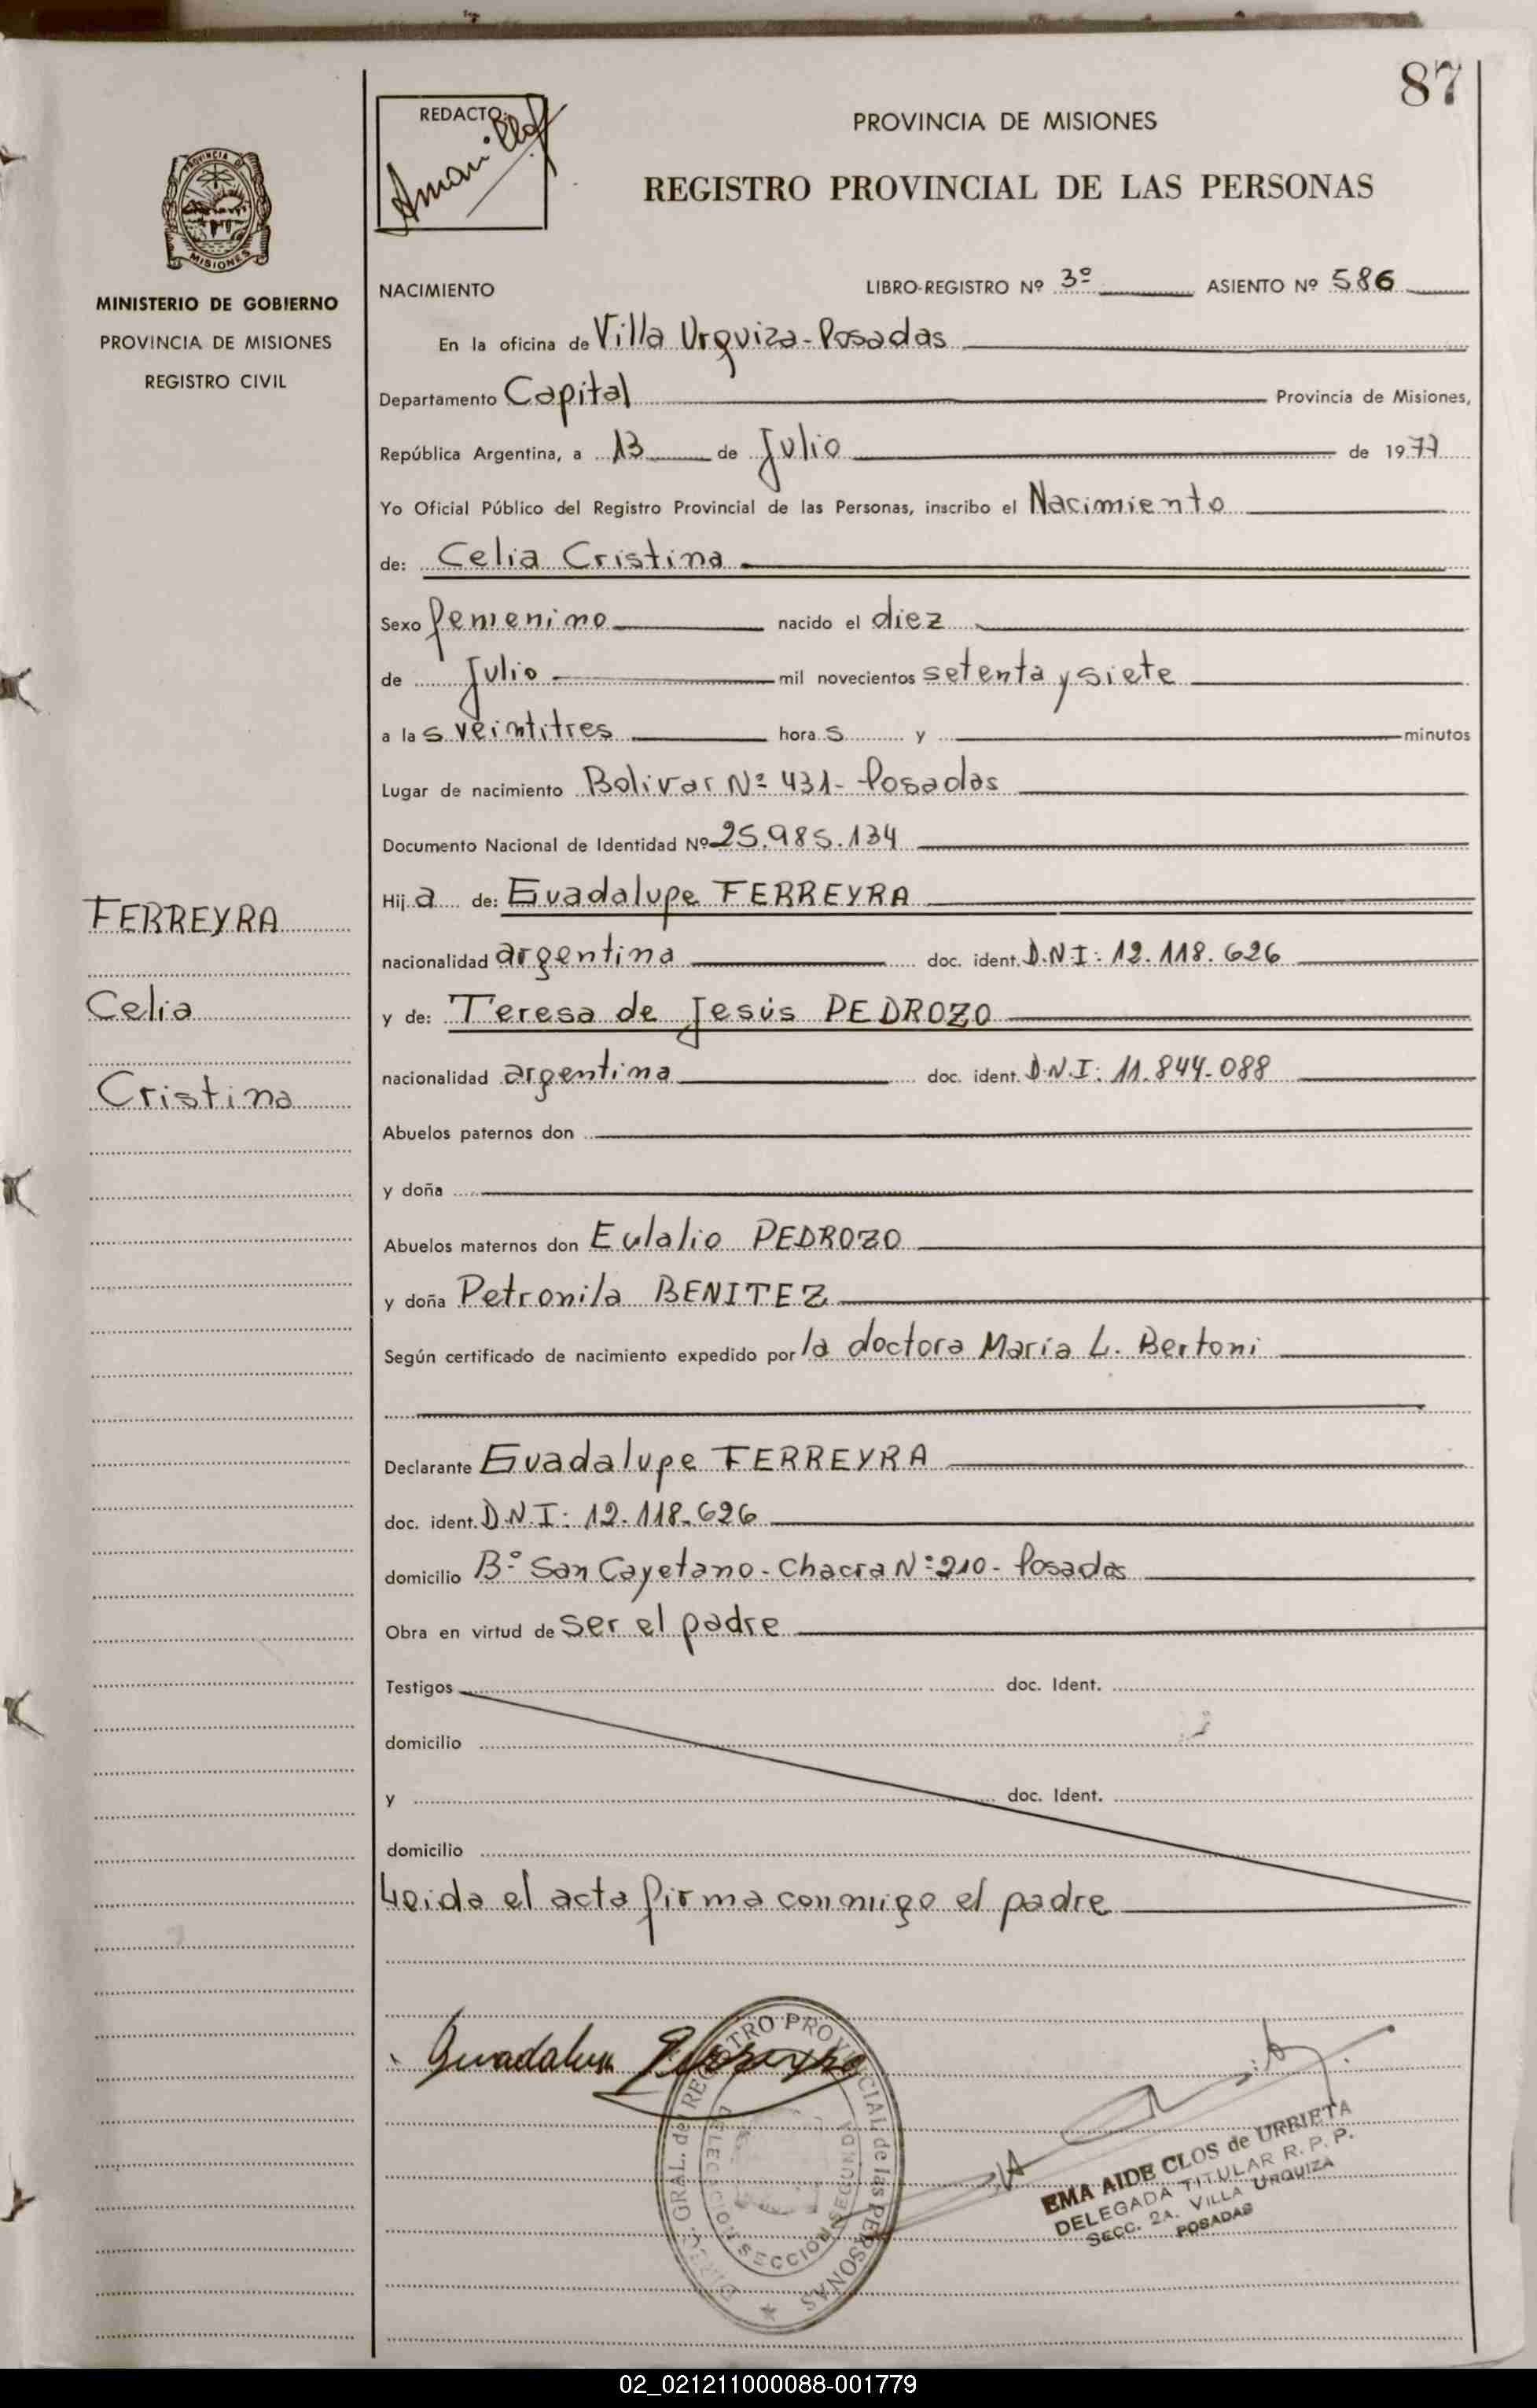 87
REDACTO:
Amarilla
PROVINCIA DE MISIONES
REGISTRO PROVINCIAL DE LAS PERSONAS
PROVINCIA DE
MISIONES
MINISTERIO DE GOBIERNO
PROVINCIA DE MISIONES
REGISTRO CIVIL
NACIMIENTO LIBRO-REGISTRO Nº 3º ASIENTO Nº 586
En la oficina de Villa Urquiza-Posadas
Departamento Capital Provincia de Misiones,
República Argentina, a 13 de Julio de 1977
Yo Oficial Público del Registro Provincial de las Personas, inscribo el Nacimiento
de: Celia Cristina
Sexo femenino nacido el diez
de Julio mil novecientos setenta y siete
a las veintitres horas y minutos
Lugar de nacimiento Bolivar Nº 431- Posadas
Documento Nacional de Identidad Nº 25.985.134
Hija de: Guadalupe FERREYRA
FERREYRA
nacionalidad argentina doc. ident. D.N.I: 12.118.626
Celia
y de: Teresa de Jesús PEDROZO
nacionalidad argentina doc. ident. D.N.I: 11.844.088
Cristina
Abuelos paternos don
y doña
Abuelos maternos don Eulalio PEDROZO
y doña Petronila BENITEZ
Según certificado de nacimiento expedido por la doctora María L. Bertoni
Declarante Guadalupe FERREYRA
doc. ident. D.N.I: 12.118.626
domicilio Bº San Cayetano-Chacra Nº 210- Posadas
Obra en virtud de ser el padre
Testigos doc. Ident.
domicilio
y doc. Ident.
domicilio
Leida el acta firma conmigo el padre
Guadalupe Ferreyra
DIREC. GRAL. del REGISTRO PROVINCIAL de las PERSONAS
SECCION SEGUNDA
EMA AIDE CLOS de URBIETA
DELEGADA TITULAR R. P. P.
SECC. 2A. VILLA URQUIZA
POSADAS
02_021211000088-001779